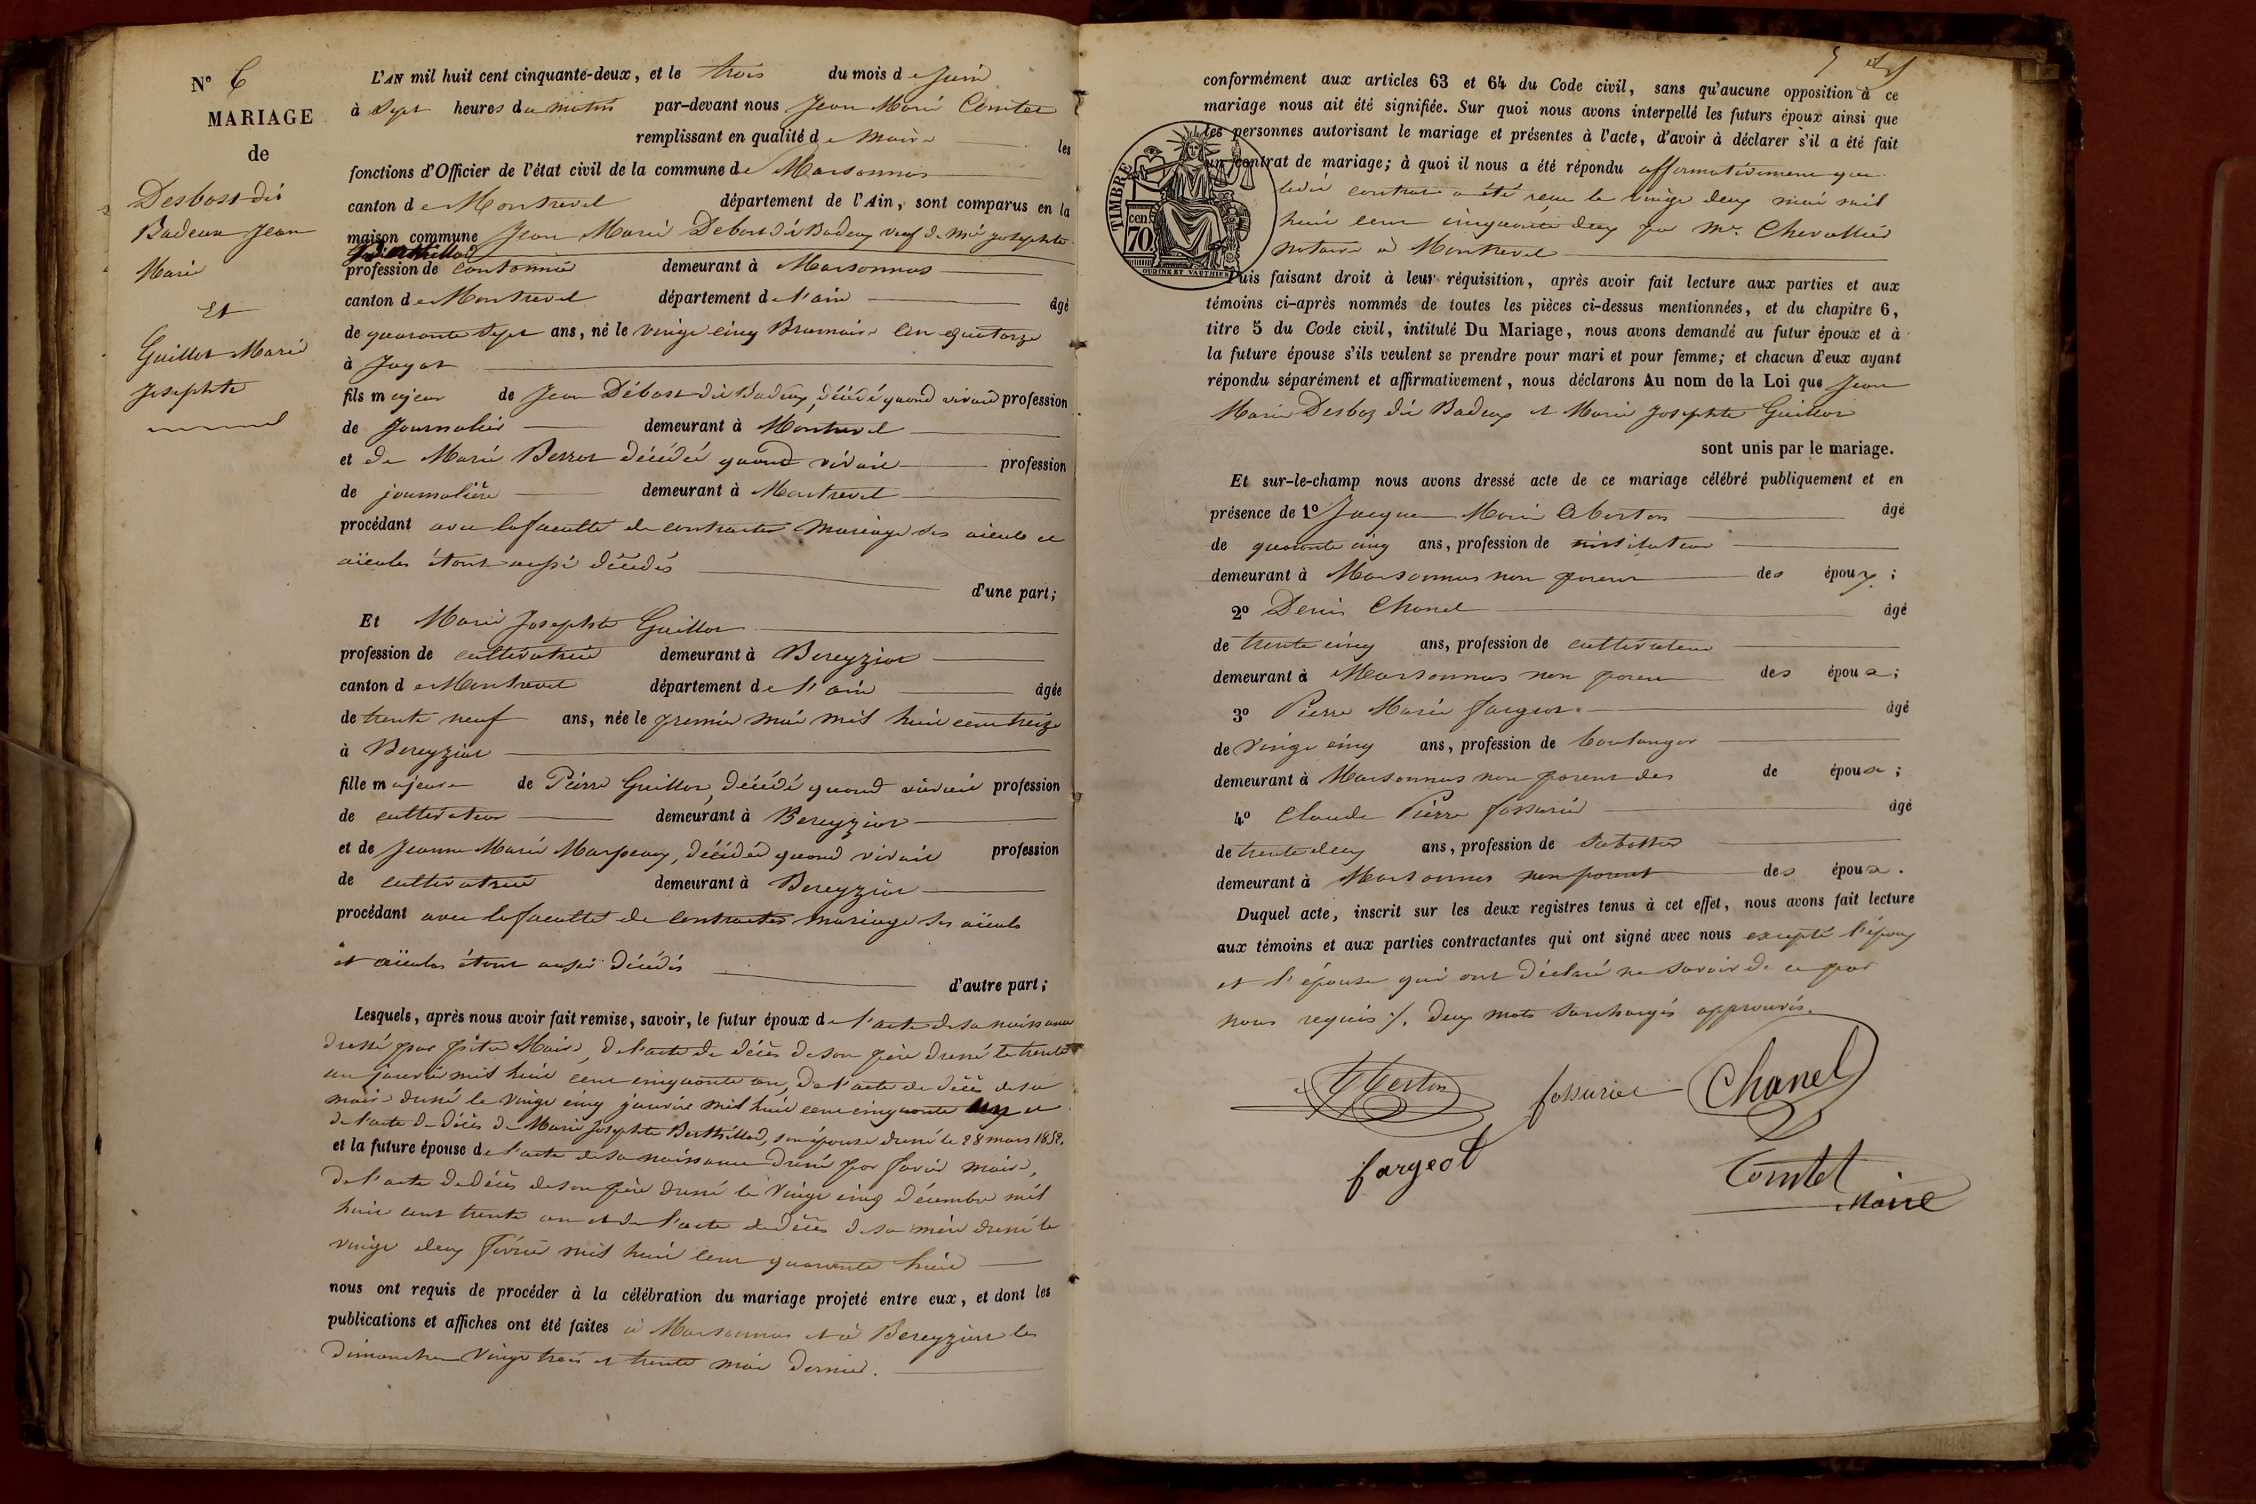 N° 6
MARIAGE
de
Desbost dit
Badeux Jean
Marie
Et
Guillot Marie
Josephte
L'AN mil huit cent cinquante-deux, et le trois du mois de Juin
à Sept heures du matin par-devant nous Jean Marie Comtet
remplissant en qualité de Maire les
fonctions d'Officier de l'état civil de la commune de Marsonnas
canton de Montrevel département de l'Ain, sont comparus en la
maison commune Jean Marie Debost dit Badeux veuf de Mie Josephte
Berthillod
profession de cantonnier demeurant à Marsonnas
canton de Montrevel département de l'ain âgé
de quarante sept ans, né le vingt cinq Brumaire an quatorze
à Jayat
fils majeur de Jean Débost dit Badeux, décédé quand vivait profession
de Journalier demeurant à Montrevel
et de Marie Berret décédée quand vivait profession
de journalière demeurant à Montrevel
procédant avec la faculté de contracter mariage ses aieuls et
aïeules étant aussi décédés
d'une part;
Et Marie Josephte Guillot
profession de cultivatrice demeurant à Bereyziat
canton de Montrevel département de l'ain âgée
de trente neuf ans, née le premier mai mil huit cent treize
à Bereyziat
fille majeure de Pierre Guillot, décédé quand vivait profession
de cultivateur demeurant à Bereyziat
et de Jeanne Marie Marpaux, décédée quand vivait profession
de cultivatrice demeurant à Bereyziat
procédant avec la faculté de contracter mariage ses aïeuls
et aïeules étant aussi décédés
d'autre part;
Lesquels, après nous avoir fait remise, savoir, le futur époux de l'acte de sa naissance
dressé par Maire, de l'acte de décès de son père dressé le trente
un janvier mil huit cent cinquante un, de l'acte de décès de sa
mère dressé le vingt cinq janvier mil huit cent cinquante deux et
de l'acte de décès de Marie Josephte Berthillod, son épouse dressé le 28 mars 1852.
et la future épouse de l'acte de sa naissance dressé par Favier maire,
de l'acte de décès de son père dressé le vingt cinq décembre mil
huit cent trente un et de l'acte de décès de sa mère dressé le
vingt deux Février mil huit cent quarante huit
nous ont requis de procéder à la célébration du mariage projeté entre eux, et dont les
publications et affiches ont été faites à Marsonnas et à Bereyziat les
dimanches vingt trois et trente mai dernier.
conformément aux articles 63 et 64 du Code civil, sans qu'aucune opposition à ce
mariage nous ait été signifiée. Sur quoi nous avons interpellé les futurs époux ainsi que
les personnes autorisant le mariage et présentes à l'acte, d'avoir à déclarer s'il a été fait
un contrat de mariage; à quoi il nous a été répondu affirmativement que
ledit contrat a été reçu le vingt deux mai mil
huit cent cinquante deux par Me. Chevallier
notaire à Montrevel
TIMBRE
cen
70
OUDINE ET VAUTHIER
Puis faisant droit à leur réquisition, après avoir fait lecture aux parties et aux
témoins ci-après nommés de toutes les pièces ci-dessus mentionnées, et du chapitre 6,
titre 5 du Code civil, intitulé Du Mariage, nous avons demandé au futur époux et à
la future épouse s'ils veulent se prendre pour mari et pour femme; et chacun d'eux ayant
répondu séparément et affirmativement, nous déclarons Au nom de la Loi que Jean
Marie Desbos dit Badeux et Marie Josephte Guillot
sont unis par le mariage.
Et sur-le-champ nous avons dressé acte de ce mariage célébré publiquement et en
présence de 1° Jacques Marie Aberton âgé
de quarante cinq ans, profession de instituteur
demeurant à Marsonnas non parent des époux;
2° Denis Chanel âgé
de trente cinq ans, profession de cultivateur
demeurant à Marsonnas non parent des époux;
3° Pierre Marie Fargeot âgé
de vingt cinq ans, profession de boulanger
demeurant à Marsonnas non parent des de époux;
4° Claude Pierre fossurier âgé
de trente deux ans, profession de sabottier
demeurant à Marsonnas non parent des époux.
Duquel acte, inscrit sur les deux registres tenus à cet effet, nous avons fait lecture
aux témoins et aux parties contractantes qui ont signé avec nous excepté l'époux
et l'épouse qui ont déclaré ne savoir de ce par
nous requis ./. deux mots surchargés approuvés.
Aberton fossurier Chanel
fargeot Comtet
Maire